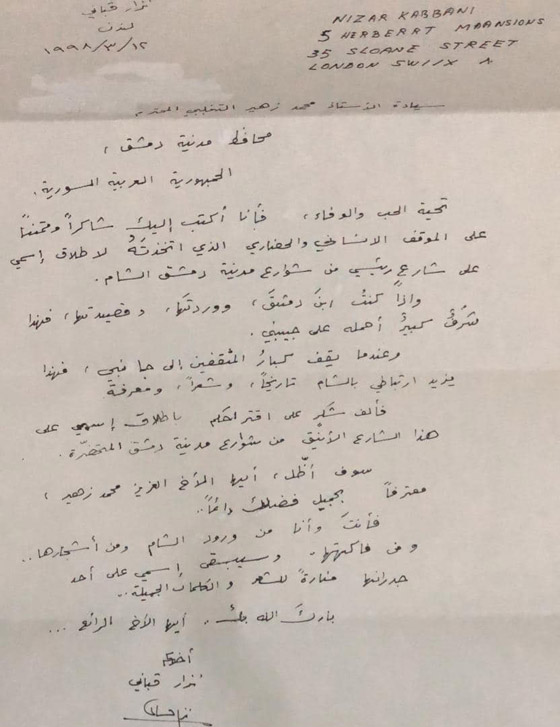 نزار قباني
لندن
١٩٩٨/٣/١٢
NIZAR KABBANI
5 HERBERRT MAANSIONS
35 SLOANE STREET
LONDON SW1XX
سيادة الأستاذ محمد زهير التغلبي المحترم
محافظ مدينة دمشق ،
الجمهورية العربية السورية .
تحية الحب والوفاء ، فأنا أكتب إليك شاكراً وممتناً
على الموقف الانساني والحضاري الذي اتخذتَهُ لاطلاق إسمي
على شارع رئيسي من شوارع مدينة دمشق الشام .
واذا كنتُ ابنَ دمشقَ ، ووردتَها ، وقصيدتها ، فهذا
شرفٌ كبيرٌ أحمله على جبيني .
وعندما يقف كبارُ المثقفين إلى جانبي ، فهذا
يزيد ارتباطي بالشام تاريخاً ، وشعراً ، ومعرفة
فألف شكر على اقتراحكم باطلاق إسمي على
هذا الشارع الأنيق من شوارع مدينة دمشق المتحضّرة .
سوف أظلُّ ، أيها الأخ العزيز محمد زهير ،
معترفاً بجميل فضلك دائماً ..
فأنتَ وأنا من ورود الشام ومن أشجارها ..
ومن فاكهتها .. وسيبقى إسمي على أحد
جدرانها منارةً للشعر والكلمات الجميلة ..
باركَ الله بك .. أيها الأخ الرائع ...
أخوكم
نزار قباني